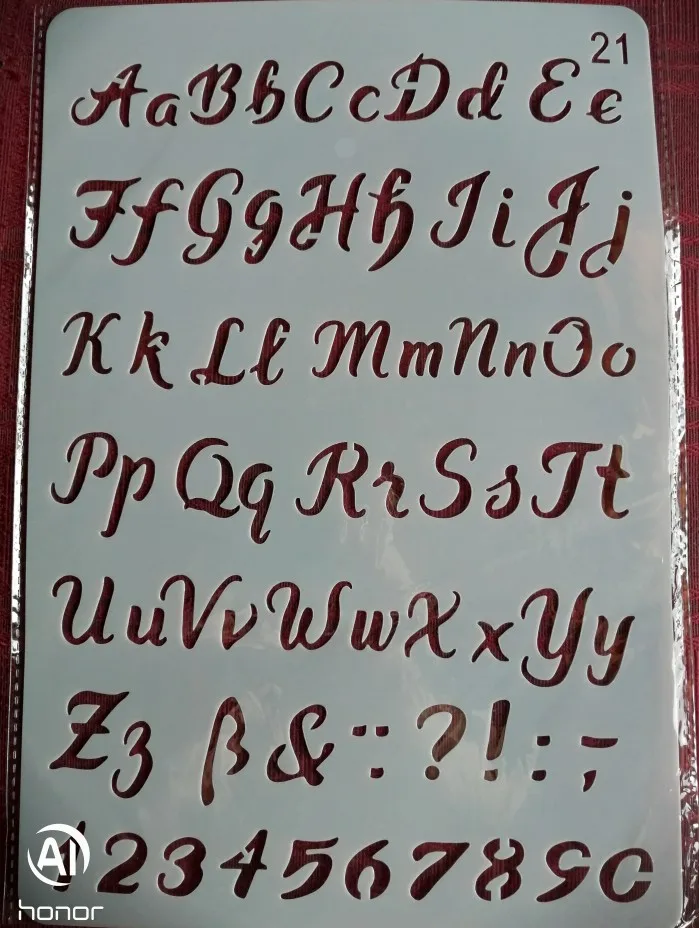 21
AaBbCcDdEe
FfGgHhIiJj
KkLlMmNnOo
PpQqRrSsTt
UuVvWwXxYy
Zzß&::?!:;-
1234567890
AI
honor